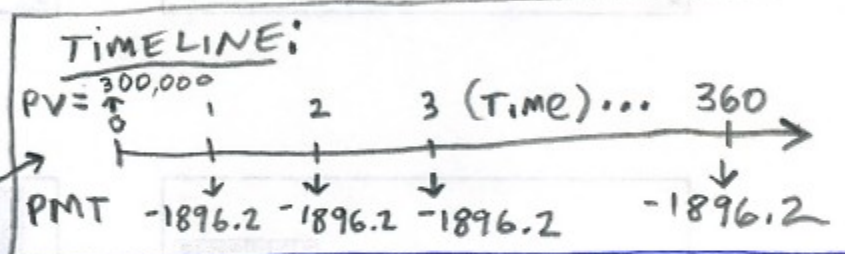 TIMELINE:
PV= 300,000
0 1 2 3 (TIME)... 360
PMT -1896.2 -1896.2 -1896.2 -1896.2